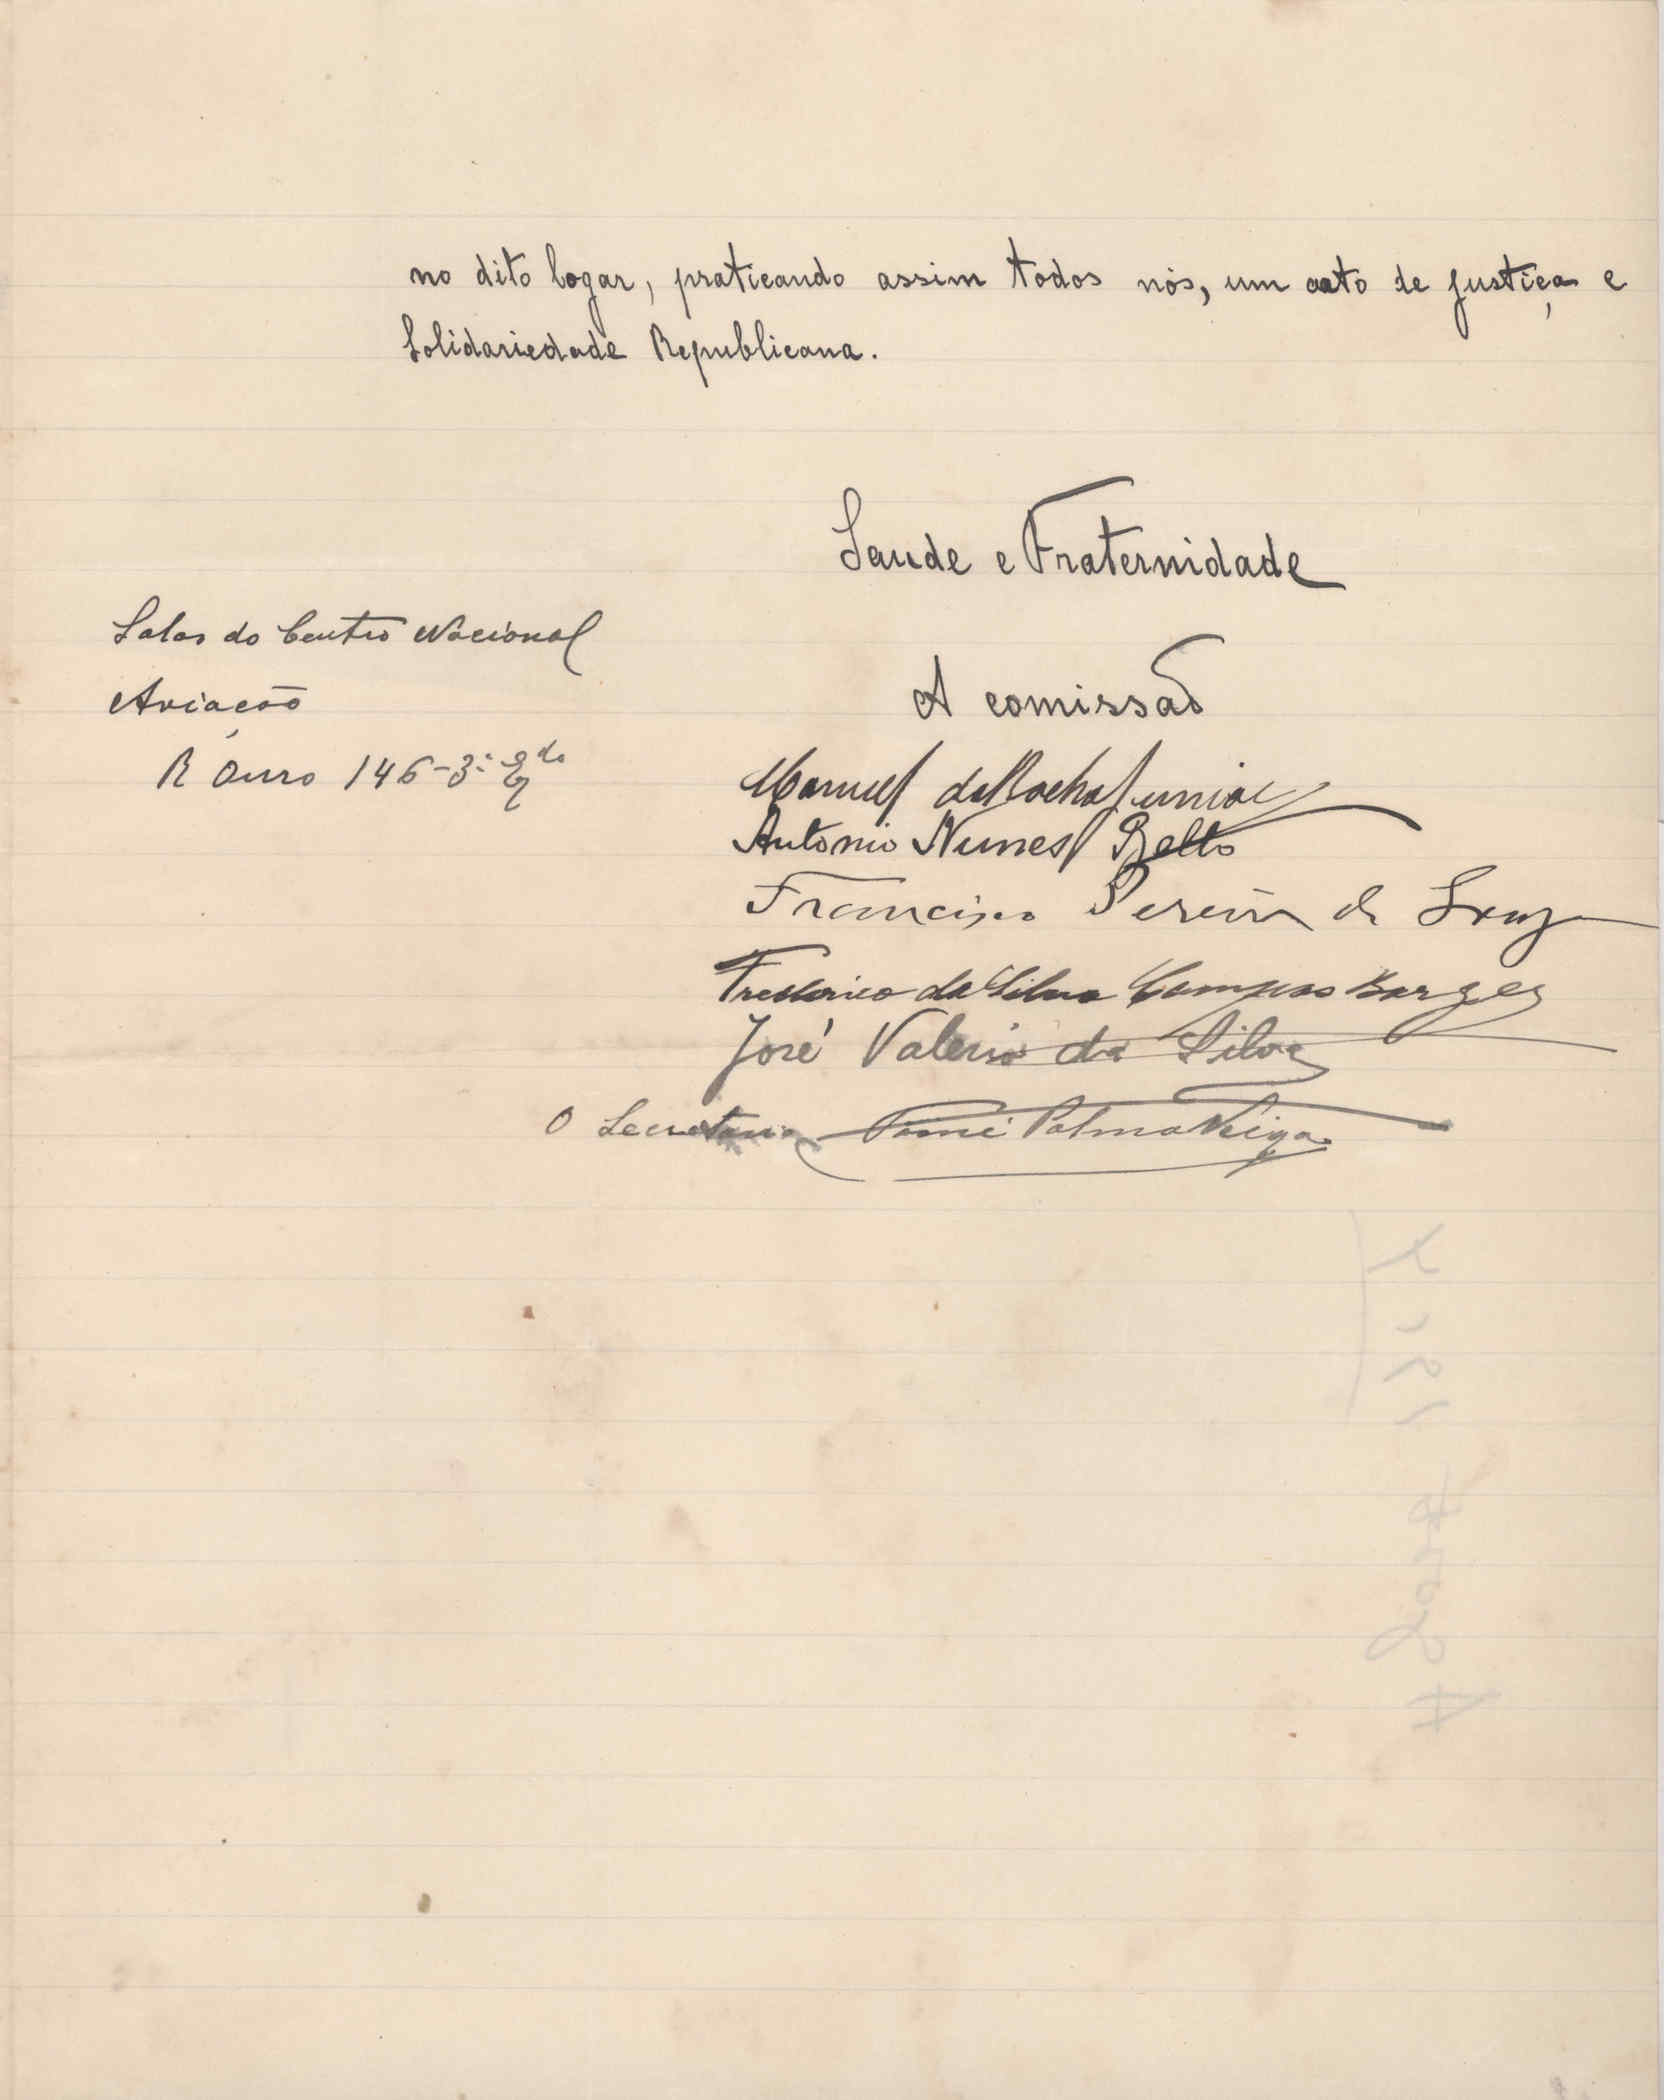 no dito logar, praticando assim todos nós, um acto de justiça e
Solidariedade Republicana.
Saude e Fraternidade
Salas do Centro Nacional
Aviação
R Ouro 146-3º Eq
A comissão
Manuel da Rocha Junior
Antonio Nunes Belto
Francisco Pereira de Souza
Frederico da Silva Campos Borges
José Valerio da Silva
O Secretario Tomé Palma Veiga